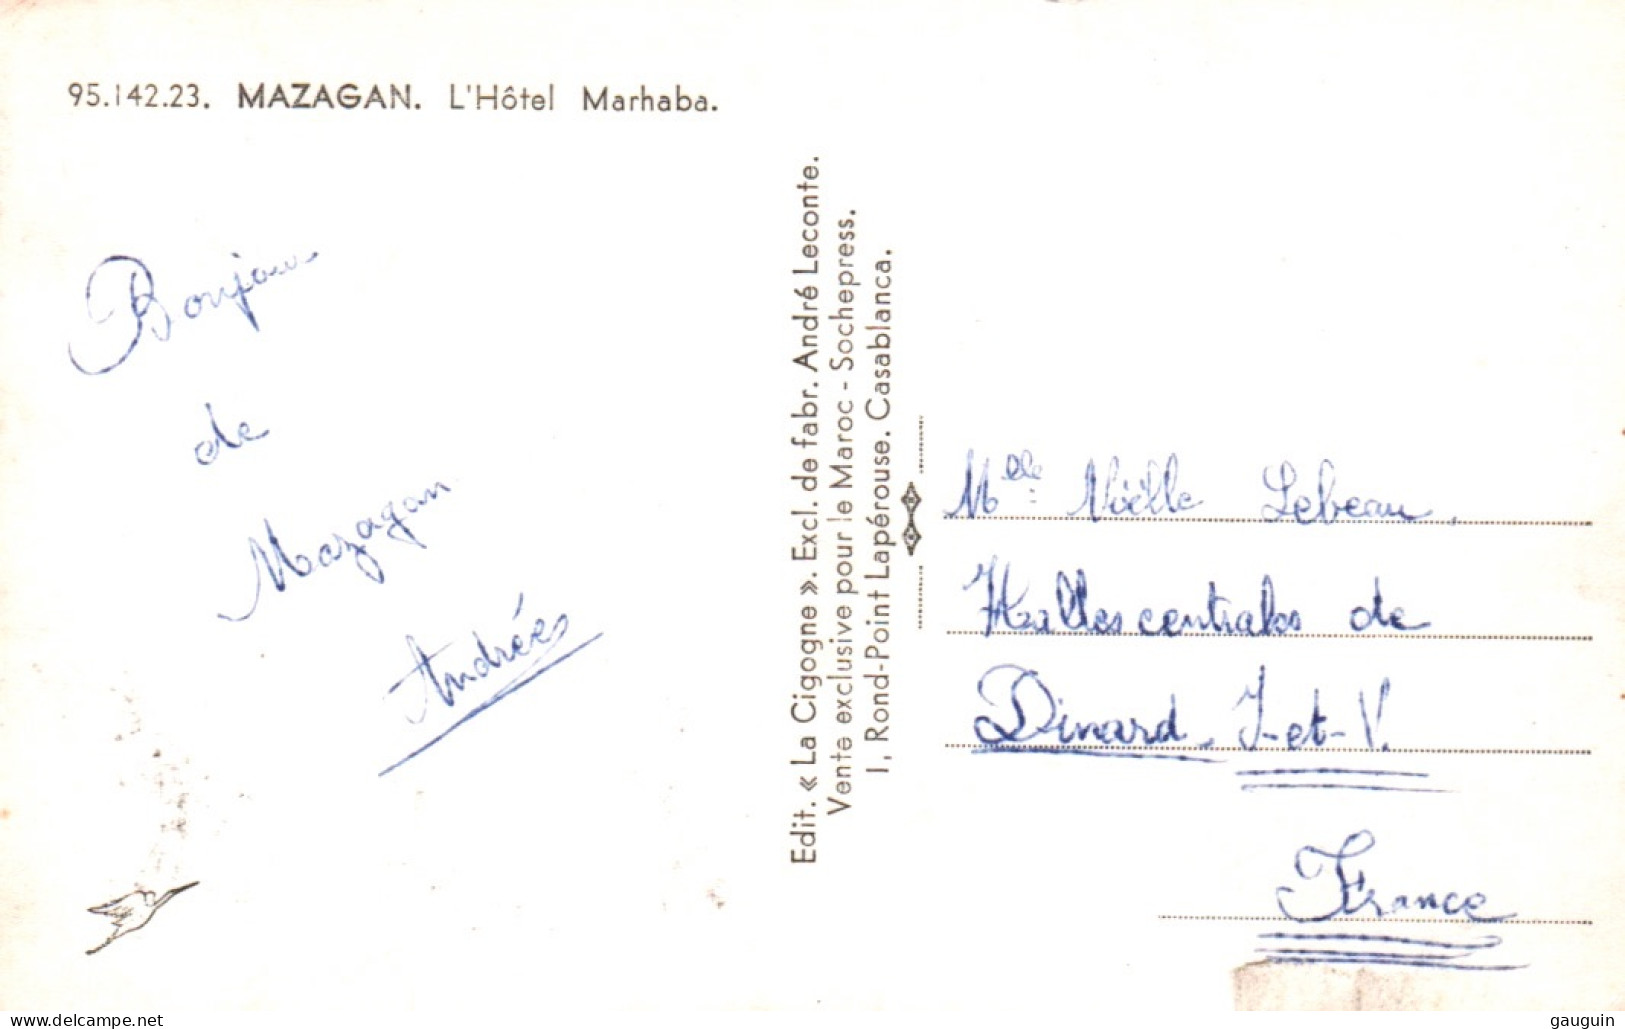 95.142.23. MAZAGAN. L'Hôtel Marhaba.
Bonjour
de
Mazagan
Andrée
Edit. « La Cigogne ». Excl. de fabr. André Leconte.
Vente exclusive pour le Maroc - Sochepress.
1, Rond-Point Lapérouse. Casablanca.
Mlle Noëlle Lebeau,
Halles centrales de
Dinard - I-et-V.
France
delcampe.net
gauguin